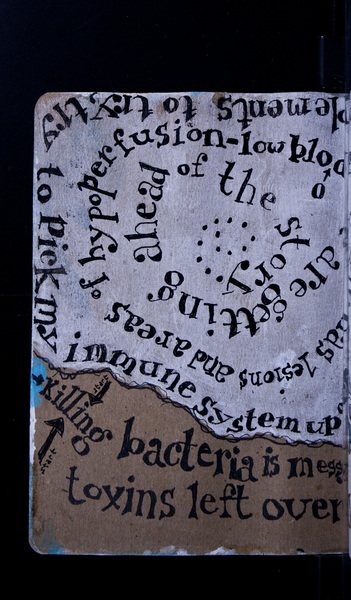 start
Killing
bacteria is mess
toxins left over
plements to try
try to pick my
immune system up
lesions and areas
of hypoperfusion-low blood
are getting
ahead of the story